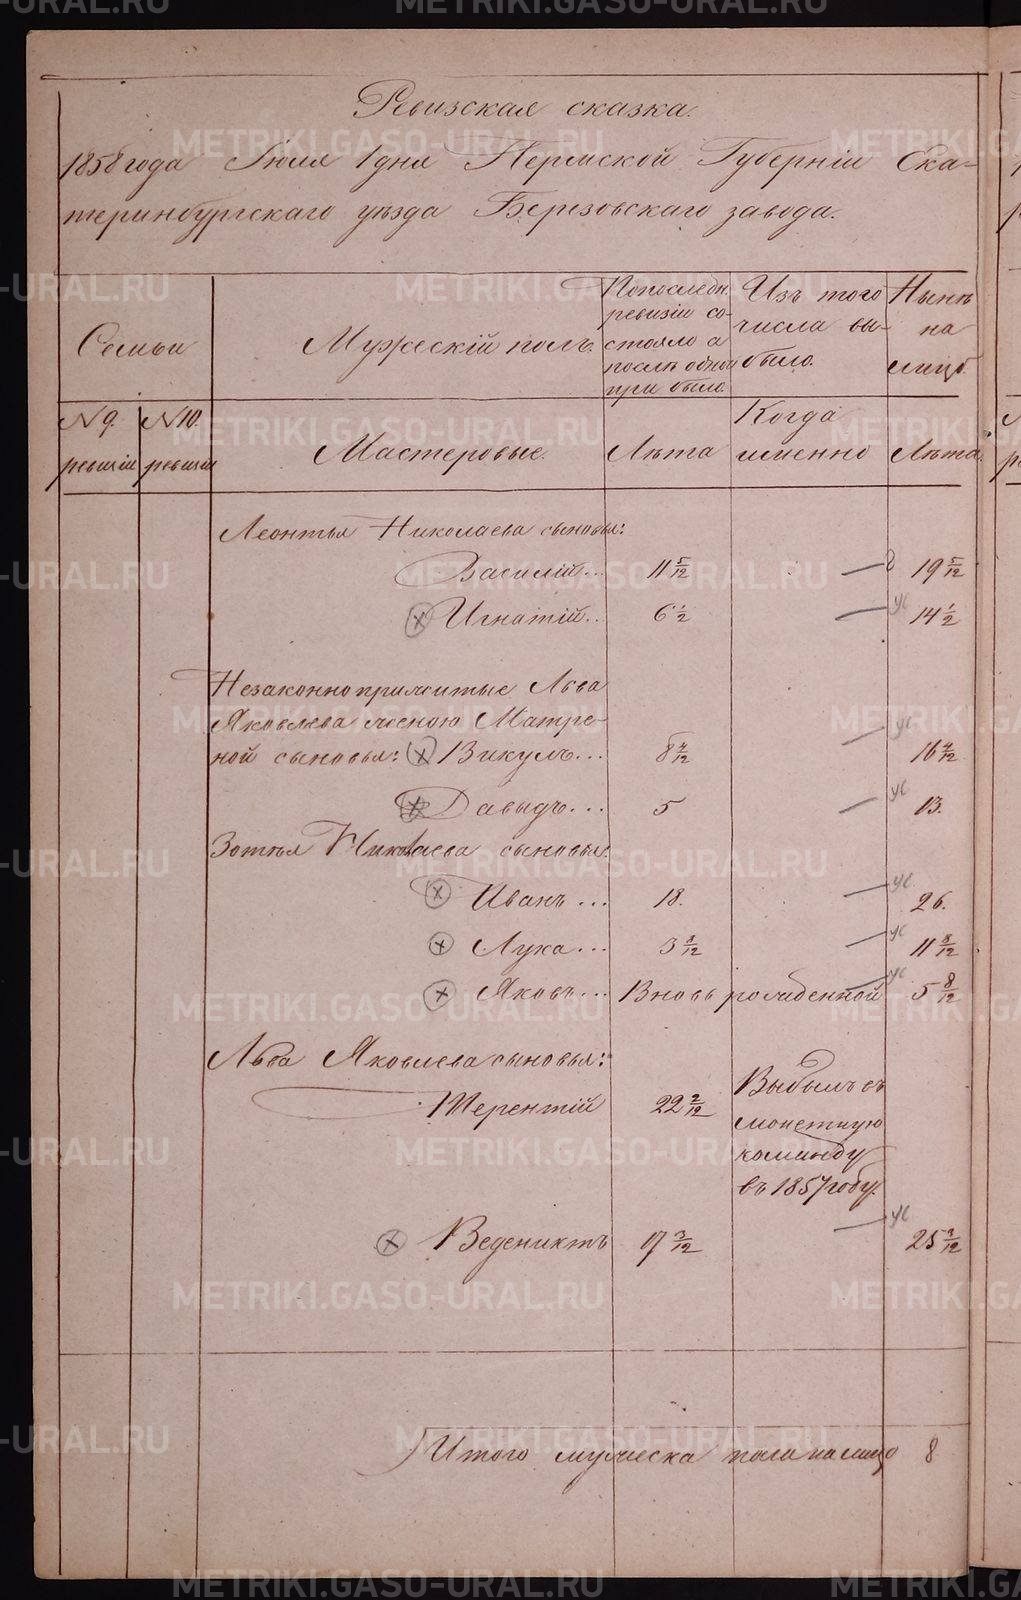 Ревизская сказка.
1858 года Июля 1 дня Пермской Губерніи Ека-
теринбургскаго уѣзда Березовскаго завода.
Семьи
Мужескій полъ.
По последн.
ревизіи со-
стояло а
после оной
при было.
Изъ того
числа вы-
было.
Нынѣ
на
лицо
№ 9.
ревизіи
№ 10.
ревизіи
Мастеровые.
Лѣта
Когда
именно
Лѣта
Леонтья Николаева сыновья:
Василій... 11 5/12 19 5/12
Игнатій.. 6 1/2 14 1/2
Незаконно прижитые Льва
Яковлева женою Матре-
ной сыновья: Викулъ... 8 4/12 16 4/12
Давыдъ... 5 13.
Зотея Николаева сыновья:
Иванъ... 18. 26.
Лука... 3 8/12 11 8/12
Яковъ... Вновь рожденной 5 8/12
Льва Яковлева сыновья:
Терентій 22 2/12 Выбылъ въ
монетную
команду
въ 1857 году.
Ведениктъ 17 3/12 25 3/12
Итого мужеска пола на лицо 8
METRIKI.GASO-URAL.RU